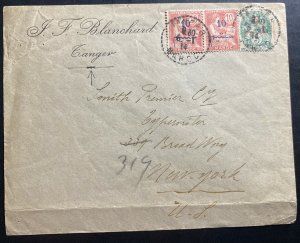 J. F. Blanchard
Tanger
10
10
MAROC
Smith Premier Co
Typewriter
339 Broad Way
319
New York
U.S.